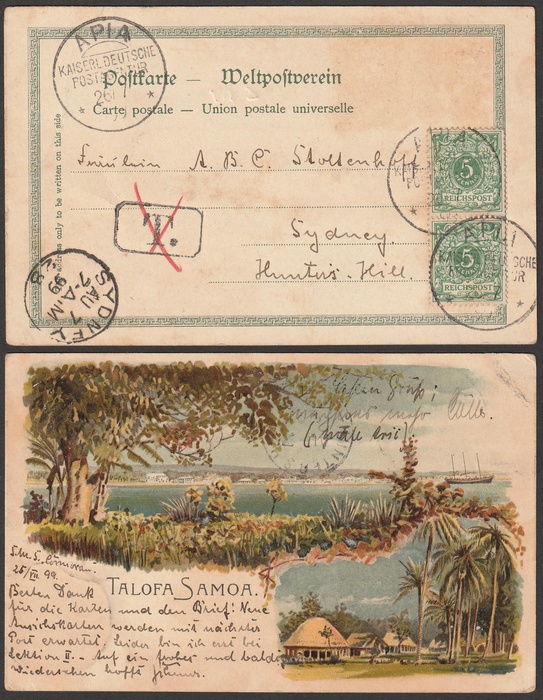 APIA
KAISERL. DEUTSCHE
POSTAGENTUR
26/7
Postkarte — Weltpostverein
Carte postale — Union postale universelle
address only to be written on this side
Fräulein A. B. C. Stoltenhoff
Sydney
Hunter's Hill.
5
PFENNIG
REICHSPOST
APIA
5
PFENNIG
REICHSPOST
APIA
T.
SYDNEY
AU 7
7-A.M
99
28
besten Gruß;
S.M.S. Cormoran.
25/VII. 99.
TALOFA SAMOA.
Besten Dank
für die Karten und den Brief! Neue
Ansichtskarten werden mit nächster
Post erwartet. Leider bin ich erst bei
Lektion II. – Auf ein frohes und baldiges
Wiedersehen hofft